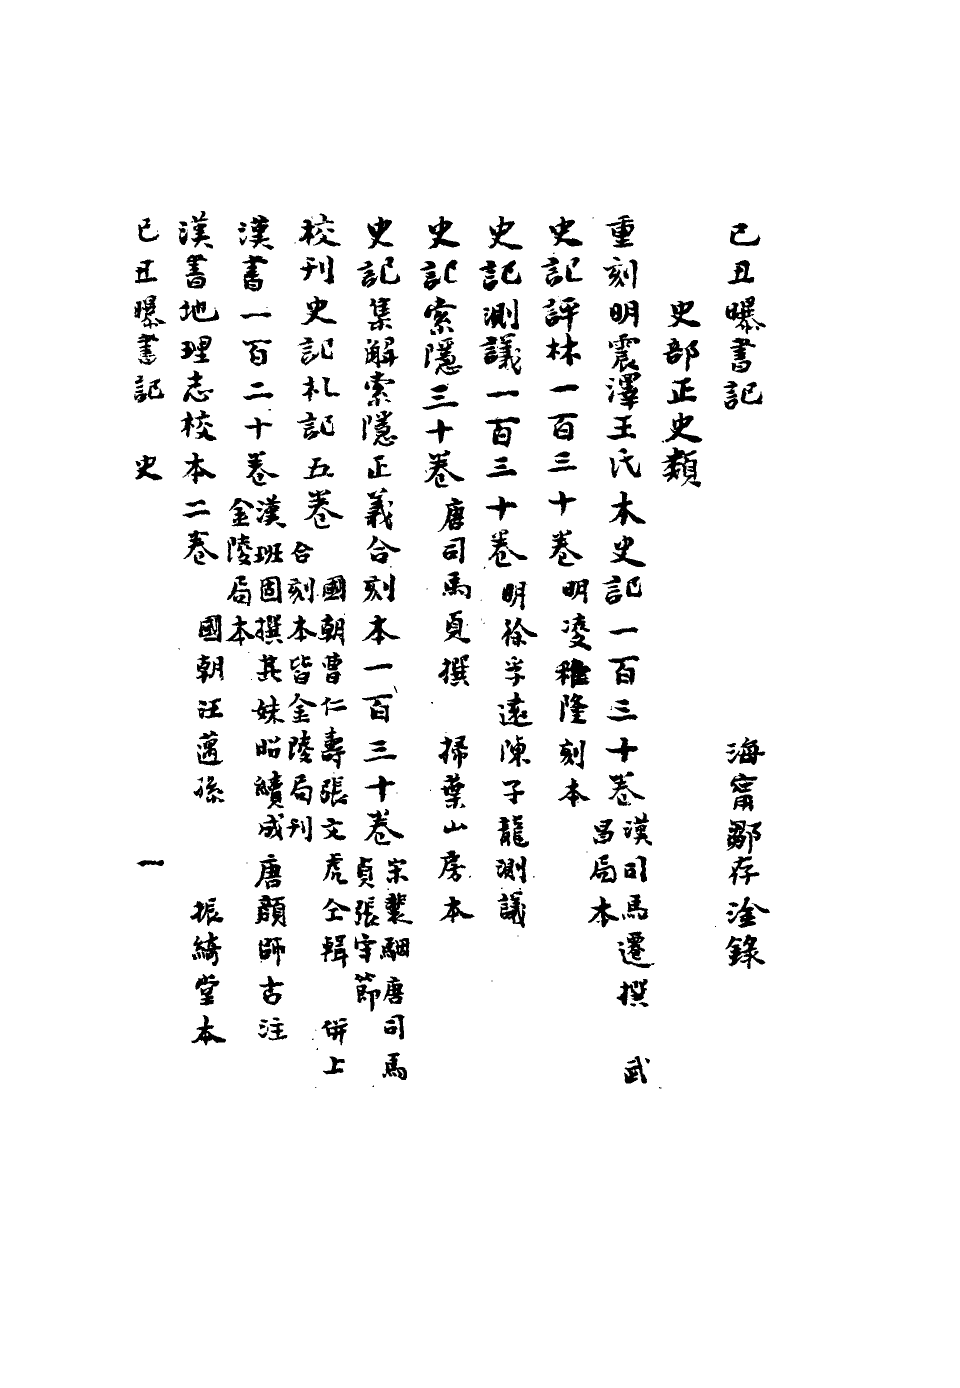 己丑曝書記　海甯鄒存淦錄
史部正史類
重刻明震澤王氏本史記一百三十卷　漢司馬遷撰　武昌局本
史記評林一百三十卷　明凌稚隆刻本
史記測議一百三十卷　明徐孚遠陳子龍測議
史記索隱三十卷　唐司馬貞撰　掃葉山房本
史記集解索隱正義合刻本一百三十卷　宋裴駰唐司馬貞張守節
校刊史記札記五卷　國朝曹仁壽張文虎仝輯　併上合刻本皆金陵局刊
漢書一百二十卷　漢班固撰其妹昭續成　唐顏師古注　金陵局本
漢書地理志校本二卷　國朝汪邁孫　振綺堂本
己丑曝書記　史　一